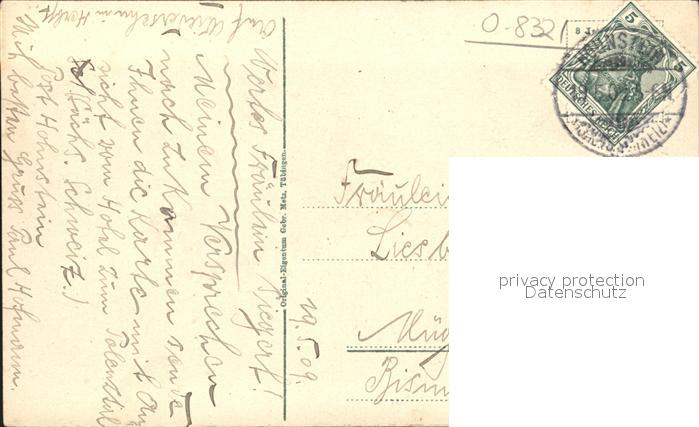 Auf Wiedersehn im Herbst
Wertes Fräulein Siegert!
Meinem Versprechen
nach zukommen sende
Ihnen die Karte mit
nicht vom Hotel zum Polenztal
Sächs. Schweiz.)
Post Hohnstein
Mit besten Gruss Paul
19.5.09.
Original-Eigentum Gebr. Metz, Tübingen.
O-8321
5
5
DEUTSCHES REICH
HOHNSTEIN
Fräulein
Lies
Müg
Bism
privacy protection
Datenschutz